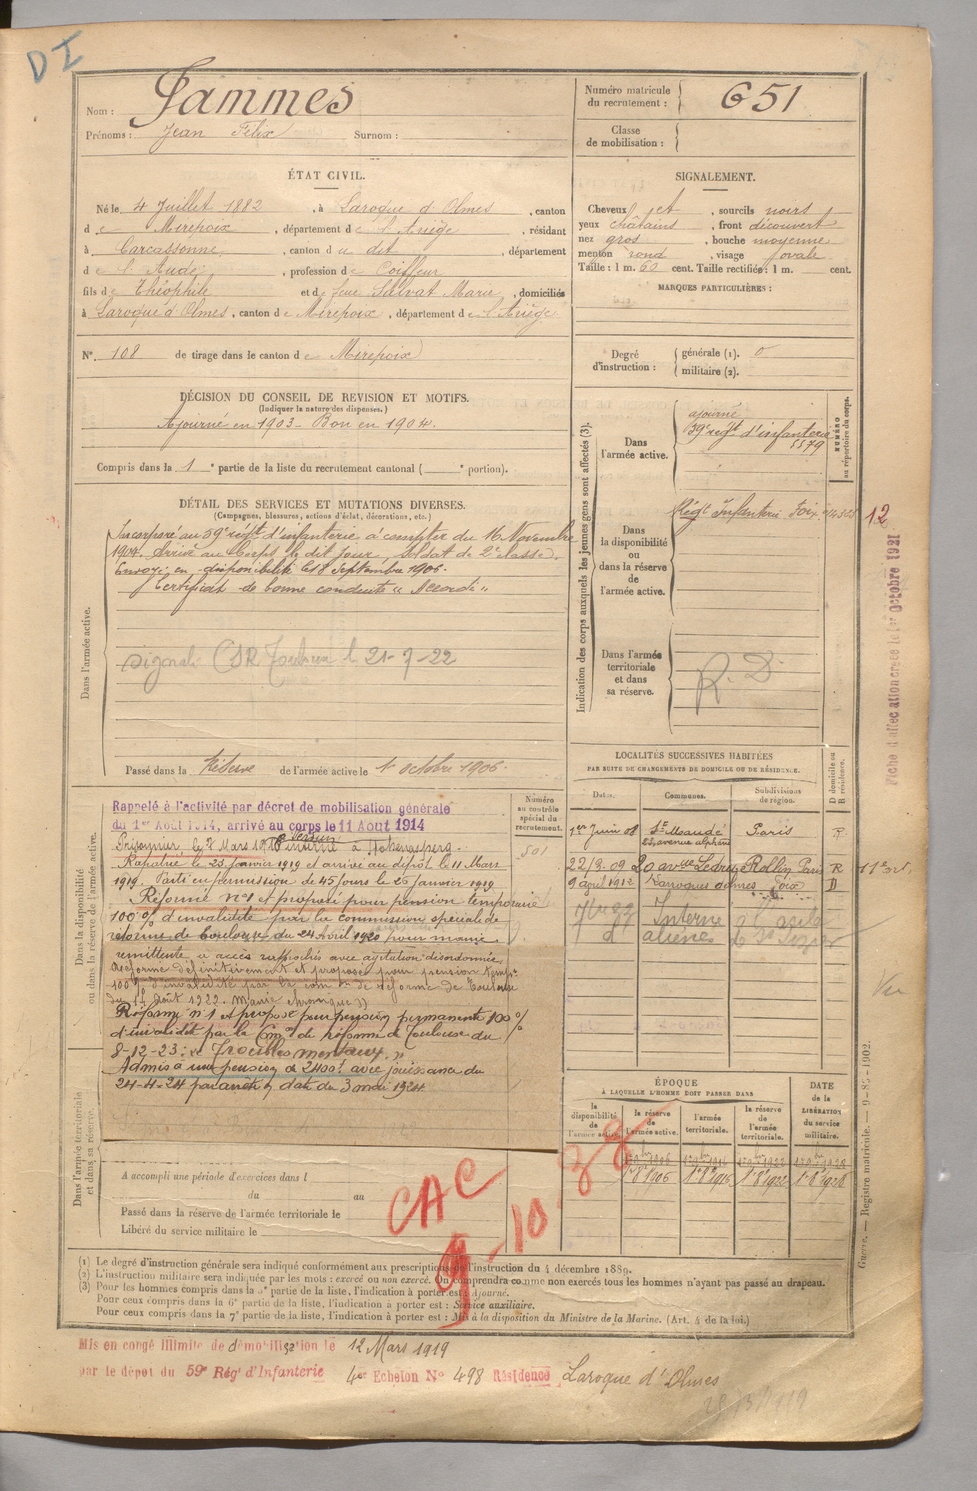 D I
Nom : Jammes
Prénoms : Jean Félix Surnom :
Numéro matricule du recrutement : 651
Classe de mobilisation :
ÉTAT CIVIL.
Né le 4 Juillet 1882, à Laroque d'Olmes, canton
d e Mirepoix, département d e l'Ariège, résidant
à Carcassonne, canton d u dit, département
d e l'Aude, profession d e Coiffeur
fils d e Théophile et d e feue Salvat Marie, domiciliés
à Laroque d'Olmes, canton d e Mirepoix, département d e l'Ariège
N° 108 de tirage dans le canton d e Mirepoix
SIGNALEMENT.
Cheveux jet, sourcils noirs
yeux châtains, front découvert
nez gros, bouche moyenne
menton rond, visage ovale
Taille : 1 m. 60 cent. Taille rectifiée : 1 m. cent.
MARQUES PARTICULIÈRES :
Degré d'instruction : générale (1). 0
militaire (2).
DÉCISION DU CONSEIL DE REVISION ET MOTIFS.
(Indiquer la nature des dispenses.)
Ajourné en 1903 - Bon en 1904.
Compris dans la 1e partie de la liste du recrutement cantonal ( e portion).
DÉTAIL DES SERVICES ET MUTATIONS DIVERSES.
(Campagnes, blessures, actions d'éclat, décorations, etc.)
Dans l'armée active.
Incorporé au 59e régt d'infanterie à compter du 16 Novembre
1904. Arrivé au Corps le dit jour, soldat de 2e classe.
Envoyé en disponibilité le 18 Septembre 1906.
Certificat de bonne conduite "Accordé"
Signalé CSR Toulouse le 21-7-22
Passé dans la Réserve de l'armée active le 1er octobre 1906.
Indication des corps auxquels les jeunes gens sont affectés (3).
NUMÉRO au répertoire du corps.
Dans l'armée active.
ajourné
59e régt d'infanterie
5579
Dans la disponibilité ou dans la réserve de l'armée active.
Régt Infanterie Foix
12
Fiche d'affectation créée le 1er Octobre 1921
Dans l'armée territoriale et dans sa réserve.
R. D
LOCALITÉS SUCCESSIVES HABITÉES
PAR SUITE DE CHANGEMENTS DE DOMICILE OU DE RÉSIDENCE.
Dates. Communes. Subdivisions de région. D domicile ou R résidence.
1er Juin 08 St Maudé Paris R
22/3.09 20 avue Ledru Rollin Paris R
9 août 1912 Laroque d'olmes Foix D
Interné à l'asile
d'aliénés de St Lizier
Vu
Dans la disponibilité ou dans la réserve de l'armée active.
Numéro au contrôle spécial du recrutement.
501
Rappelé à l'activité par décret de mobilisation générale
du 1er Août 1914, arrivé au corps le 11 Aout 1914
Prisonnier le 2 Mars 1916 à Verdun interné à Hohenasperg.
Rapatrié le 23 janvier 1919 et arrivé au dépôt le 11 Mars
1919. Parti en permission de 45 jours le 26 janvier 1919
Réformé n°1 et proposé pour pension temporaire
100 % d'invalidité par la commission spéciale de
réforme de Toulouse du 24 Avril 1920 pour manie
remittente à accès rapprochés avec agitation désordonnée.
Réformé définitivement et proposé pour pension temp.
100 % d'invalidité par la com on de réforme de Toulouse
du 16 Août 1922. Manie chronique))
Réformé n°1 et proposé pour pension permanente 100 %
d'invalidité par la Comon de réforme de Toulouse du
8-12-23 : "Troubles mentaux."
Admis à une pension de 2400f avec jouissance du
24-4-24 par arrêté en date du 3 mai 1924
ÉPOQUE
À LAQUELLE L'HOMME DOIT PASSER DANS
la disponibilité de l'armée active. la réserve de l'armée active. l'armée territoriale. la réserve de l'armée territoriale. DATE de la LIBÉRATION du service militaire.
1er 8bre 1906 1er 8bre 1916 1er 8bre 1922 1er 8bre 1928
Dans l'armée territoriale et dans sa réserve.
A accompli une période d'exercices dans l
du au
Passé dans la réserve de l'armée territoriale le
Libéré du service militaire le
CAC
9-10 38
(1) Le degré d'instruction générale sera indiqué conformément aux prescriptions de l'instruction du 4 décembre 1889.
(2) L'instruction militaire sera indiquée par les mots : exercé ou non exercé. On comprendra comme non exercés tous les hommes n'ayant pas passé au drapeau.
(3) Pour les hommes compris dans la 5e partie de la liste, l'indication à porter est : Ajourné.
Pour ceux compris dans la 6e partie de la liste, l'indication à porter est : Service auxiliaire.
Pour ceux compris dans la 7e partie de la liste, l'indication à porter est : Mis à la disposition du Ministre de la Marine. (Art. 4 de la loi.)
Guerre. — Registre matricule. — 9-83-1902.
Mis en congé illimité de démobilisation le 12 Mars 1919
par le dépot du 59e Régt d'Infanterie 4e Echelon N° 498 Résidence Laroque d'Olmes